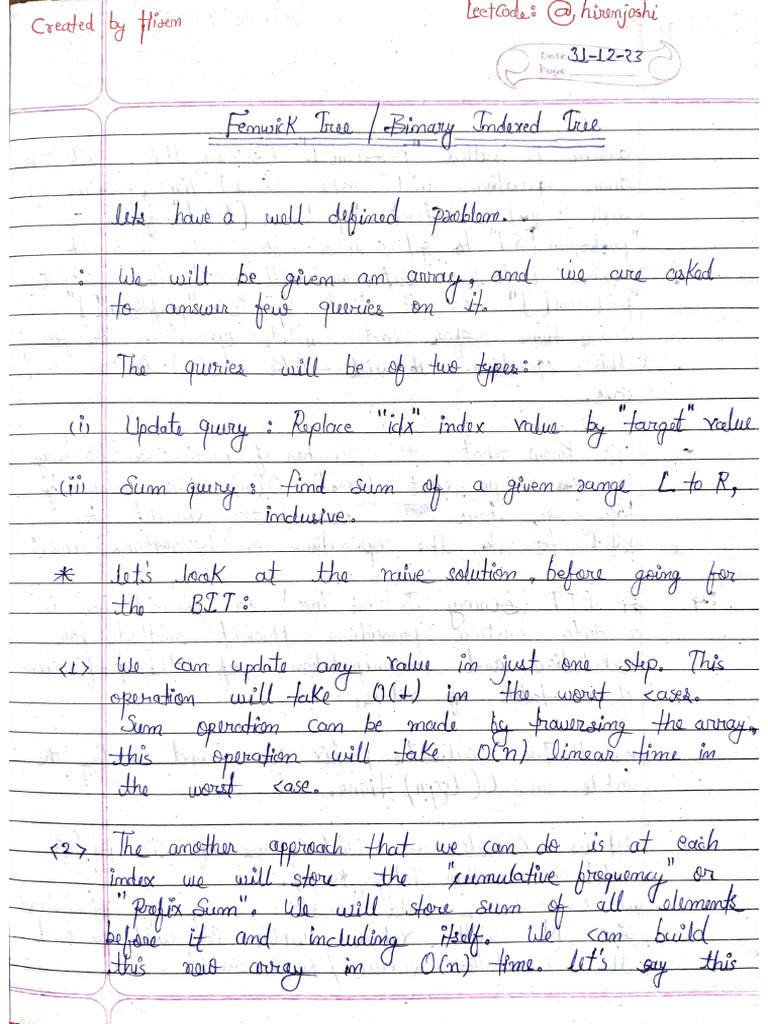 Created by Hiren
LeetCode: @hirenjoshi
Date 31-12-23
Page
Fenwick Tree / Binary Indexed Tree
- lets have a well defined problem.
: We will be given an array, and we are asked
to answer few queries on it.
The queries will be of two types:
(i) Update query : Replace "idx" index value by "target" value
(ii) Sum query : find sum of a given range L to R,
inclusive.
* let's look at the naive solution, before going for
the BIT:
<1> We can update any value in just one step. This
operation will take O(1) in the worst cases.
Sum operation can be made by traversing the array,
this operation will take O(n) linear time in
the worst case.
<2> The another approach that we can do is at each
index we will store the "cumulative frequency" or
"Prefix Sum". We will store sum of all elements
before it and including itself. We can build
this new array in O(n) time. let's say this